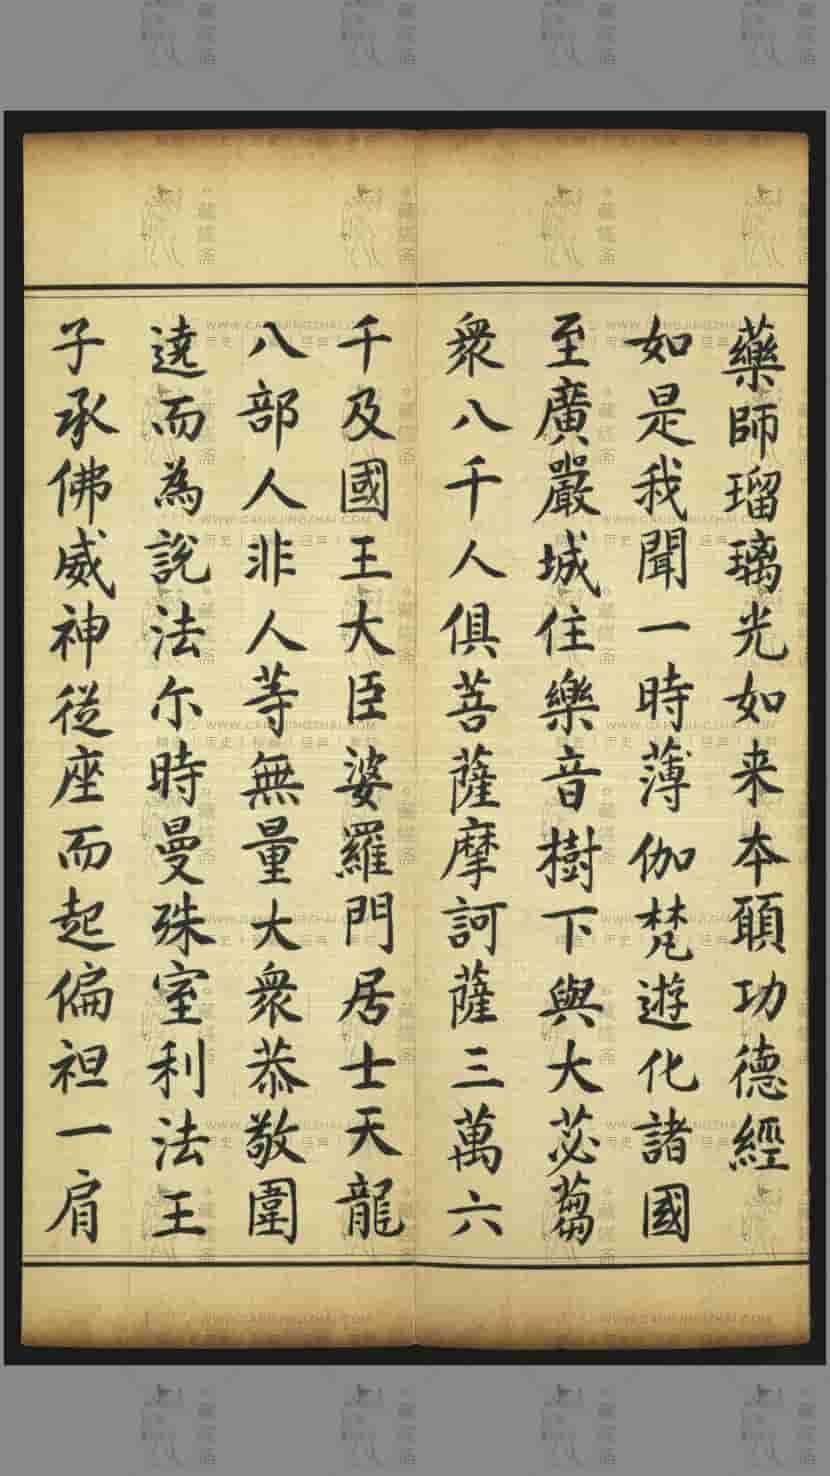 藥師瑠璃光如来本願功德經
如是我聞一時薄伽梵遊化諸國
至廣嚴城住樂音樹下與大苾蒭
衆八千人俱菩薩摩訶薩三萬六
千及國王大臣婆羅門居士天龍
八部人非人等無量大衆恭敬圍
遶而為說法尒時曼殊室利法王
子承佛威神從座而起偏袒一肩
WWW.CANGJINGZHAI.COM